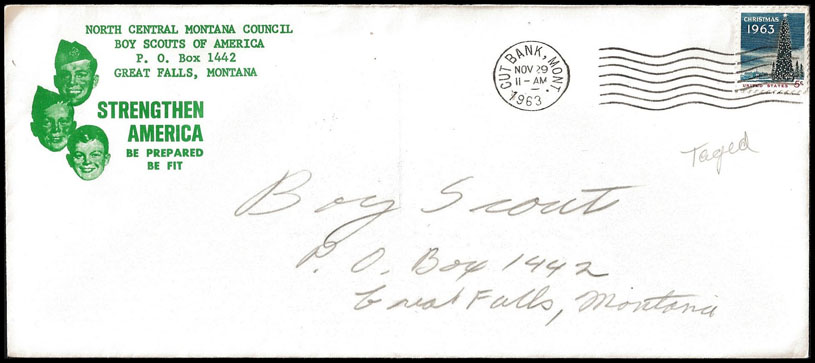 NORTH CENTRAL MONTANA COUNCIL
BOY SCOUTS OF AMERICA
P. O. Box 1442
GREAT FALLS, MONTANA
STRENGTHEN
AMERICA
BE PREPARED
BE FIT
CUT BANK, MONT.
NOV 29
11-AM
1963
CHRISTMAS
1963
5c
UNITED STATES
Taged
Boy Scout
P. O. Box 1442
Great Falls, Montana